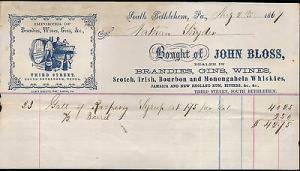 South Bethlehem, Pa., Aug 186
IMPORTER OF
Brandies, Wines, Gins, &c.,
THIRD STREET,
SOUTH BETHLEHEM, PENNA.
Nathan Snyder
Bought of JOHN BLOSS,
DEALER IN
BRANDIES, GINS, WINES,
Scotch, Irish, Bourbon and Monongahela Whiskies,
JAMAICA AND NEW ENGLAND RUM, BITTERS, &c., &c.,
THIRD STREET, SOUTH BETHLEHEM.
23 Gall of Raspberry Syrup at 175 per Gal 40.25
Barrel 2.50
$ 42.75